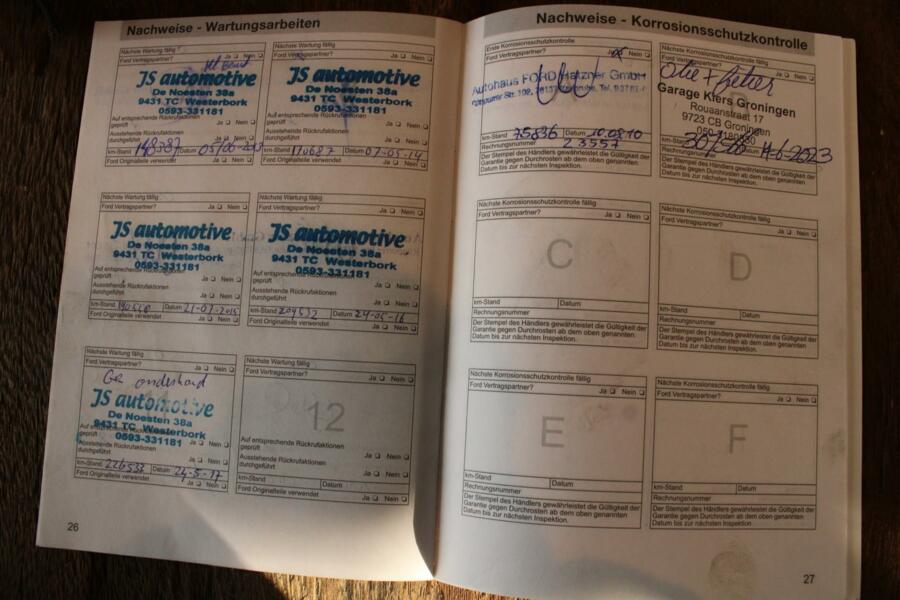 Nachweise - Wartungsarbeiten
Nächste Wartung fällig
Ford Vertragspartner? Ja Nein
JS automotive
De Noesten 38a
9431 TC Westerbork
0593-331181
Auf entsprechende Rückrufaktionen
geprüft Ja Nein
Ausstehende Rückrufaktionen
durchgeführt Ja Nein
km-Stand 148787 Datum 05-06-2013
Ford Originalteile verwendet Ja Nein
Nächste Wartung fällig
Ford Vertragspartner? Ja Nein
JS automotive
De Noesten 38a
9431 TC Westerbork
0593-331181
Auf entsprechende Rückrufaktionen
geprüft Ja Nein
Ausstehende Rückrufaktionen
durchgeführt Ja Nein
km-Stand 170687 Datum 07-05-14
Ford Originalteile verwendet Ja Nein
Nächste Wartung fällig
Ford Vertragspartner? Ja Nein
JS automotive
De Noesten 38a
9431 TC Westerbork
0593-331181
Auf entsprechende Rückrufaktionen
geprüft Ja Nein
Ausstehende Rückrufaktionen
durchgeführt Ja Nein
km-Stand Datum 21-07-2015
Ford Originalteile verwendet Ja Nein
Nächste Wartung fällig
Ford Vertragspartner? Ja Nein
JS automotive
De Noesten 38a
9431 TC Westerbork
0593-331181
Auf entsprechende Rückrufaktionen
geprüft Ja Nein
Ausstehende Rückrufaktionen
durchgeführt Ja Nein
km-Stand 209532 Datum 24-05-16
Ford Originalteile verwendet Ja Nein
Nächste Wartung fällig
Ford Vertragspartner? Ja Nein
Gr onderhoud
JS automotive
De Noesten 38a
9431 TC Westerbork
0593-331181
Auf entsprechende Rückrufaktionen
geprüft Ja Nein
Ausstehende Rückrufaktionen
durchgeführt Ja Nein
km-Stand 226533 Datum 24-5-17
Ford Originalteile verwendet Ja Nein
Nächste Wartung fällig
Ford Vertragspartner? Ja Nein
12
Auf entsprechende Rückrufaktionen
geprüft Ja Nein
Ausstehende Rückrufaktionen
durchgeführt Ja Nein
km-Stand Datum
Ford Originalteile verwendet Ja Nein
26
Nachweise - Korrosionsschutzkontrolle
Erste Korrosionsschutzkontrolle
Ford Vertragspartner? Ja Nein
Autohaus FORD Hatzner GmbH
km-Stand 75836 Datum 20.08.10
Rechnungsnummer 23557
Der Stempel des Händlers gewährleistet die Gültigkeit der
Garantie gegen Durchrosten ab dem oben genannten
Datum bis zur nächsten Inspektion.
Nächste Korrosionsschutzkontrolle fällig
Ford Vertragspartner? Ja Nein
Olie + filter
Garage Kiers Groningen
Rouaanstraat 17
9723 CB Groningen
km-Stand 14-6-2023
Rechnungsnummer
Der Stempel des Händlers gewährleistet die Gültigkeit der
Garantie gegen Durchrosten ab dem oben genannten
Datum bis zur nächsten Inspektion.
Nächste Korrosionsschutzkontrolle fällig
Ford Vertragspartner? Ja Nein
C
km-Stand Datum
Rechnungsnummer
Der Stempel des Händlers gewährleistet die Gültigkeit der
Garantie gegen Durchrosten ab dem oben genannten
Datum bis zur nächsten Inspektion.
Nächste Korrosionsschutzkontrolle fällig
Ford Vertragspartner? Ja Nein
D
km-Stand Datum
Rechnungsnummer
Der Stempel des Händlers gewährleistet die Gültigkeit der
Garantie gegen Durchrosten ab dem oben genannten
Datum bis zur nächsten Inspektion.
Nächste Korrosionsschutzkontrolle fällig
Ford Vertragspartner? Ja Nein
E
km-Stand Datum
Rechnungsnummer
Der Stempel des Händlers gewährleistet die Gültigkeit der
Garantie gegen Durchrosten ab dem oben genannten
Datum bis zur nächsten Inspektion.
Nächste Korrosionsschutzkontrolle fällig
Ford Vertragspartner? Ja Nein
F
km-Stand Datum
Rechnungsnummer
Der Stempel des Händlers gewährleistet die Gültigkeit der
Garantie gegen Durchrosten ab dem oben genannten
Datum bis zur nächsten Inspektion.
27